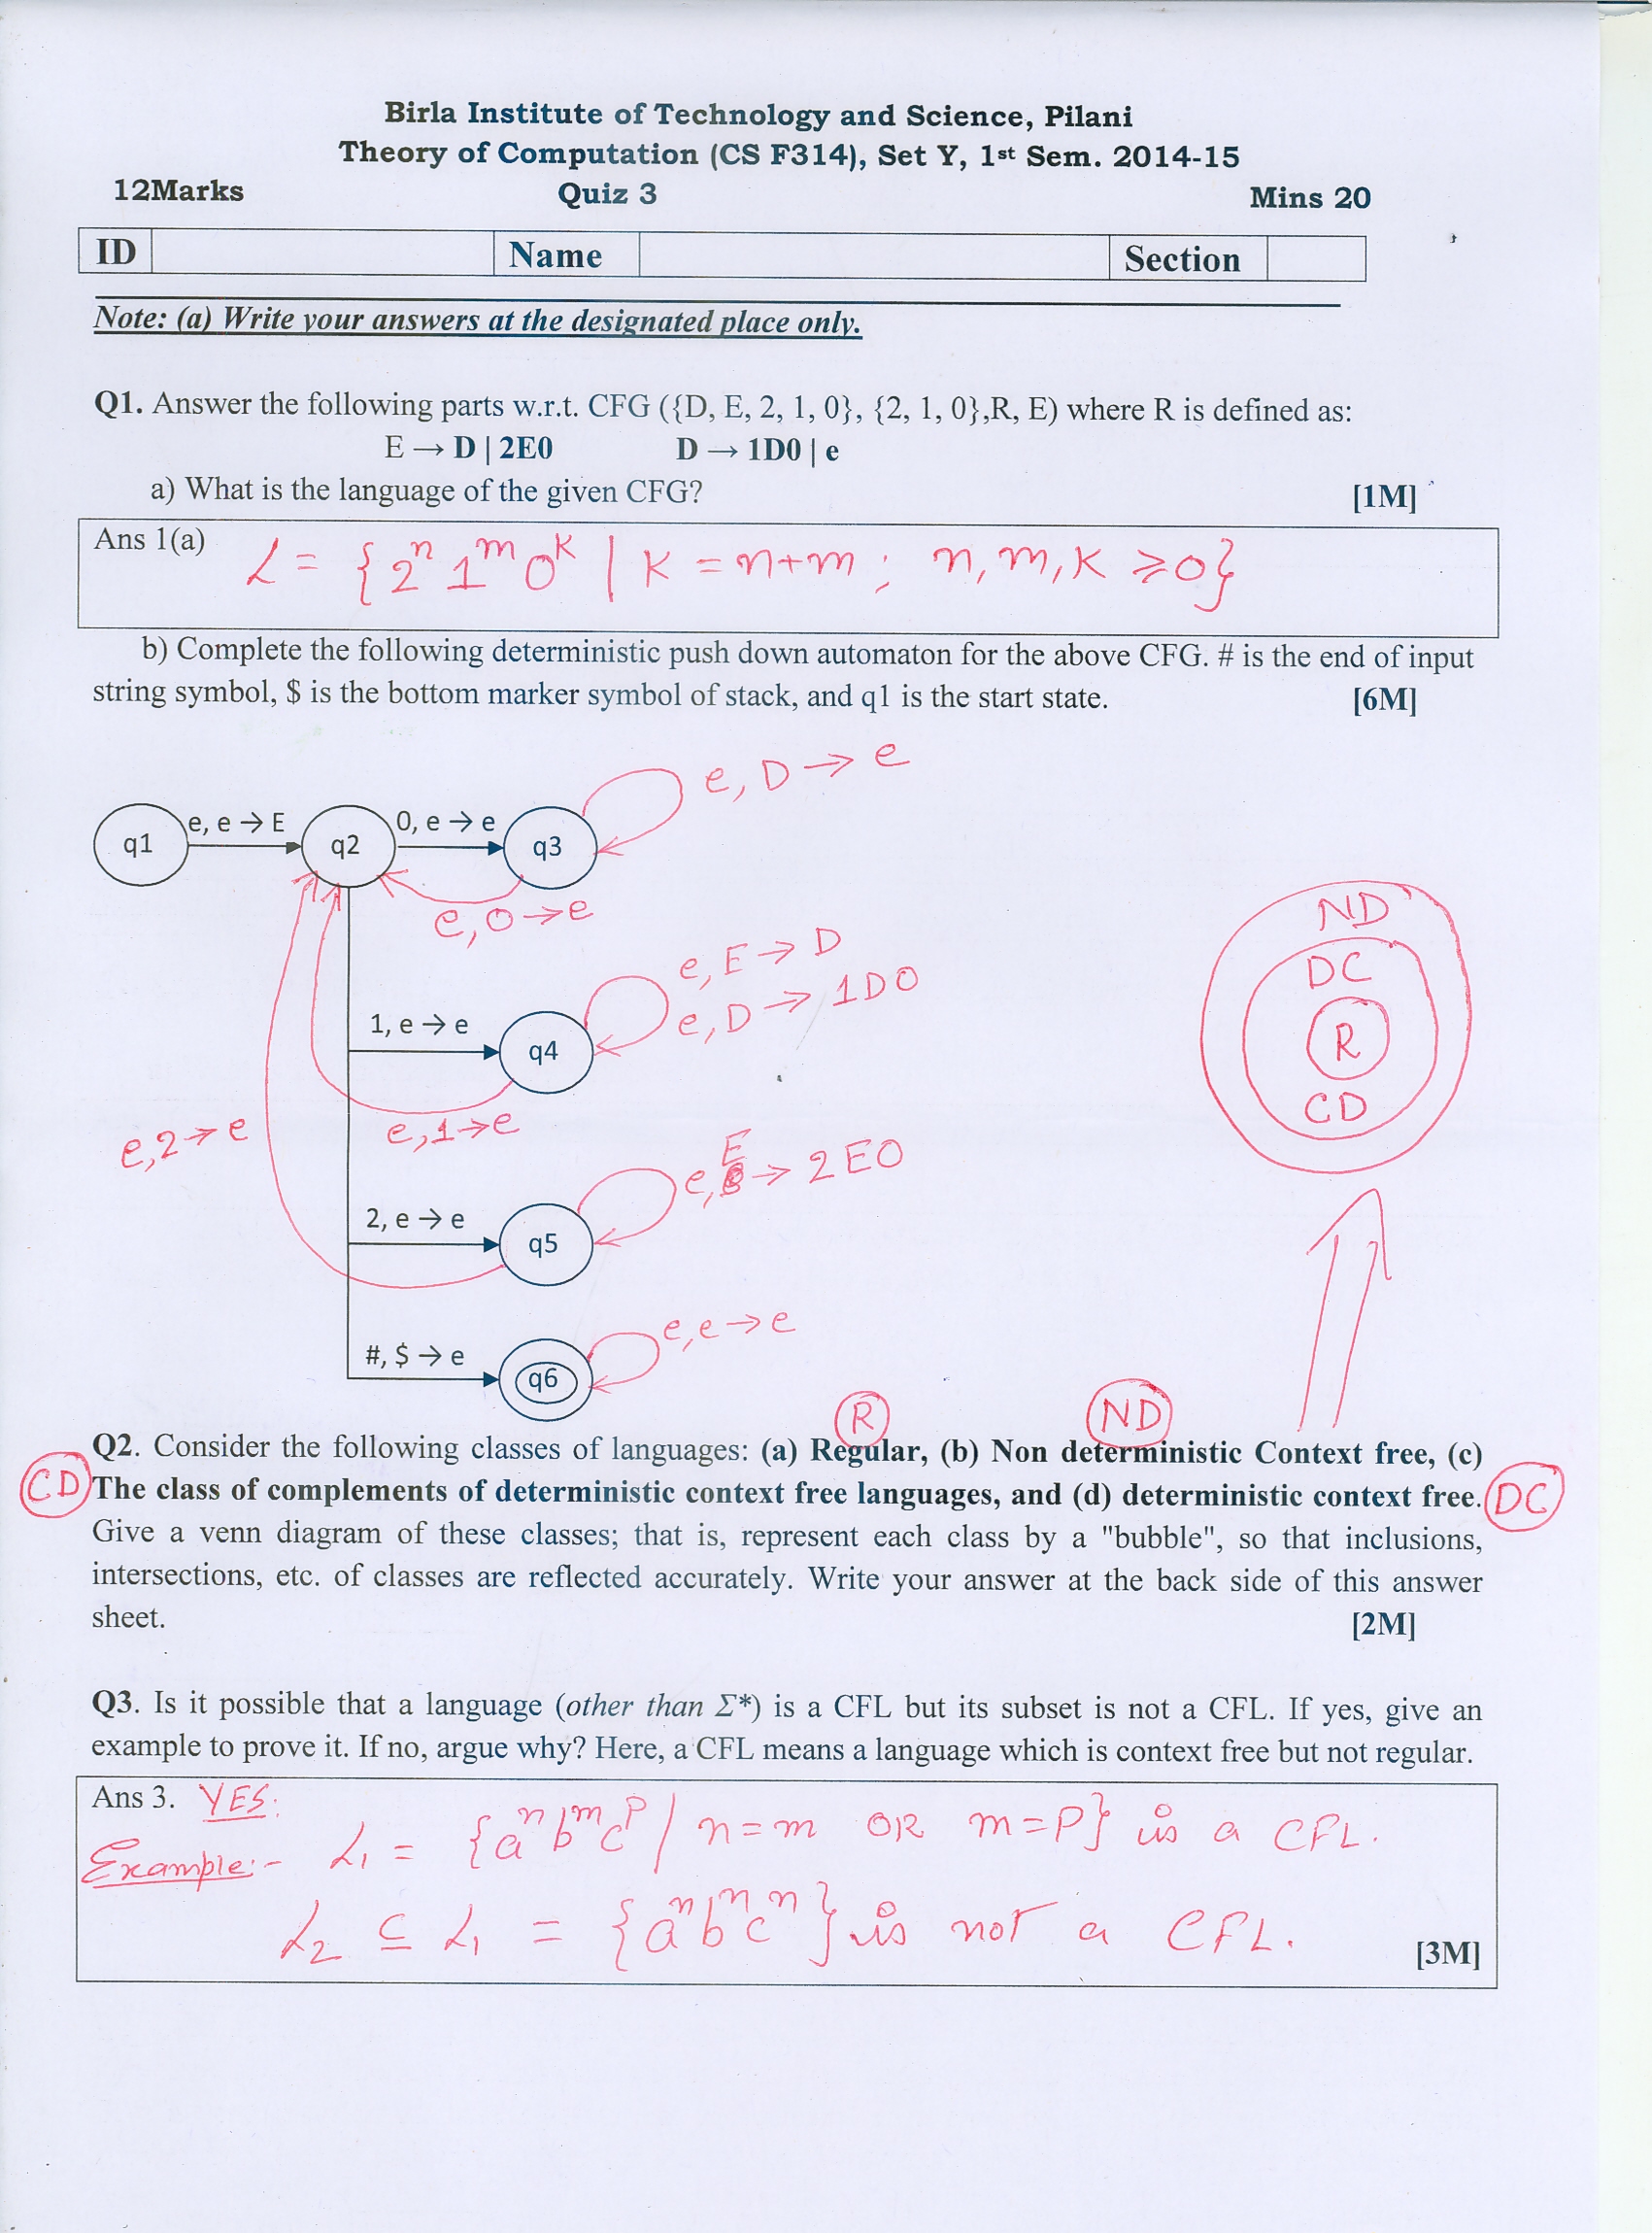 Birla Institute of Technology and Science, Pilani
Theory of Computation (CS F314), Set Y, 1st Sem. 2014-15
12Marks Quiz 3 Mins 20
ID Name Section
Note: (a) Write your answers at the designated place only.
Q1. Answer the following parts w.r.t. CFG ({D, E, 2, 1, 0}, {2, 1, 0},R, E) where R is defined as:
E → D | 2E0 D → 1D0 | e
a) What is the language of the given CFG? [1M]
Ans 1(a) L = {2^n 1^m 0^k | K = n+m ; n, m, K ⩾ 0}
b) Complete the following deterministic push down automaton for the above CFG. # is the end of input
string symbol, $ is the bottom marker symbol of stack, and q1 is the start state. [6M]
e, D → e
q1 e, e → E q2 0, e → e q3
e, 0 → e
ND
DC
R
CD
e, E → D
e, D → 1D0
1, e → e q4
e, 1 → e
e, 2 → e
e, E → 2E0
2, e → e q5
e, e → e
#, $ → e q6
R ND
Q2. Consider the following classes of languages: (a) Regular, (b) Non deterministic Context free, (c)
CD The class of complements of deterministic context free languages, and (d) deterministic context free. DC
Give a venn diagram of these classes; that is, represent each class by a "bubble", so that inclusions,
intersections, etc. of classes are reflected accurately. Write your answer at the back side of this answer
sheet. [2M]
Q3. Is it possible that a language (other than Σ*) is a CFL but its subset is not a CFL. If yes, give an
example to prove it. If no, argue why? Here, a CFL means a language which is context free but not regular.
Ans 3. YES:
Example:- L₁ = {a^n b^m c^p / n = m OR m = p} is a CFL.
L₂ ⊆ L₁ = {a^n b^n c^n} is not a CFL.
[3M]